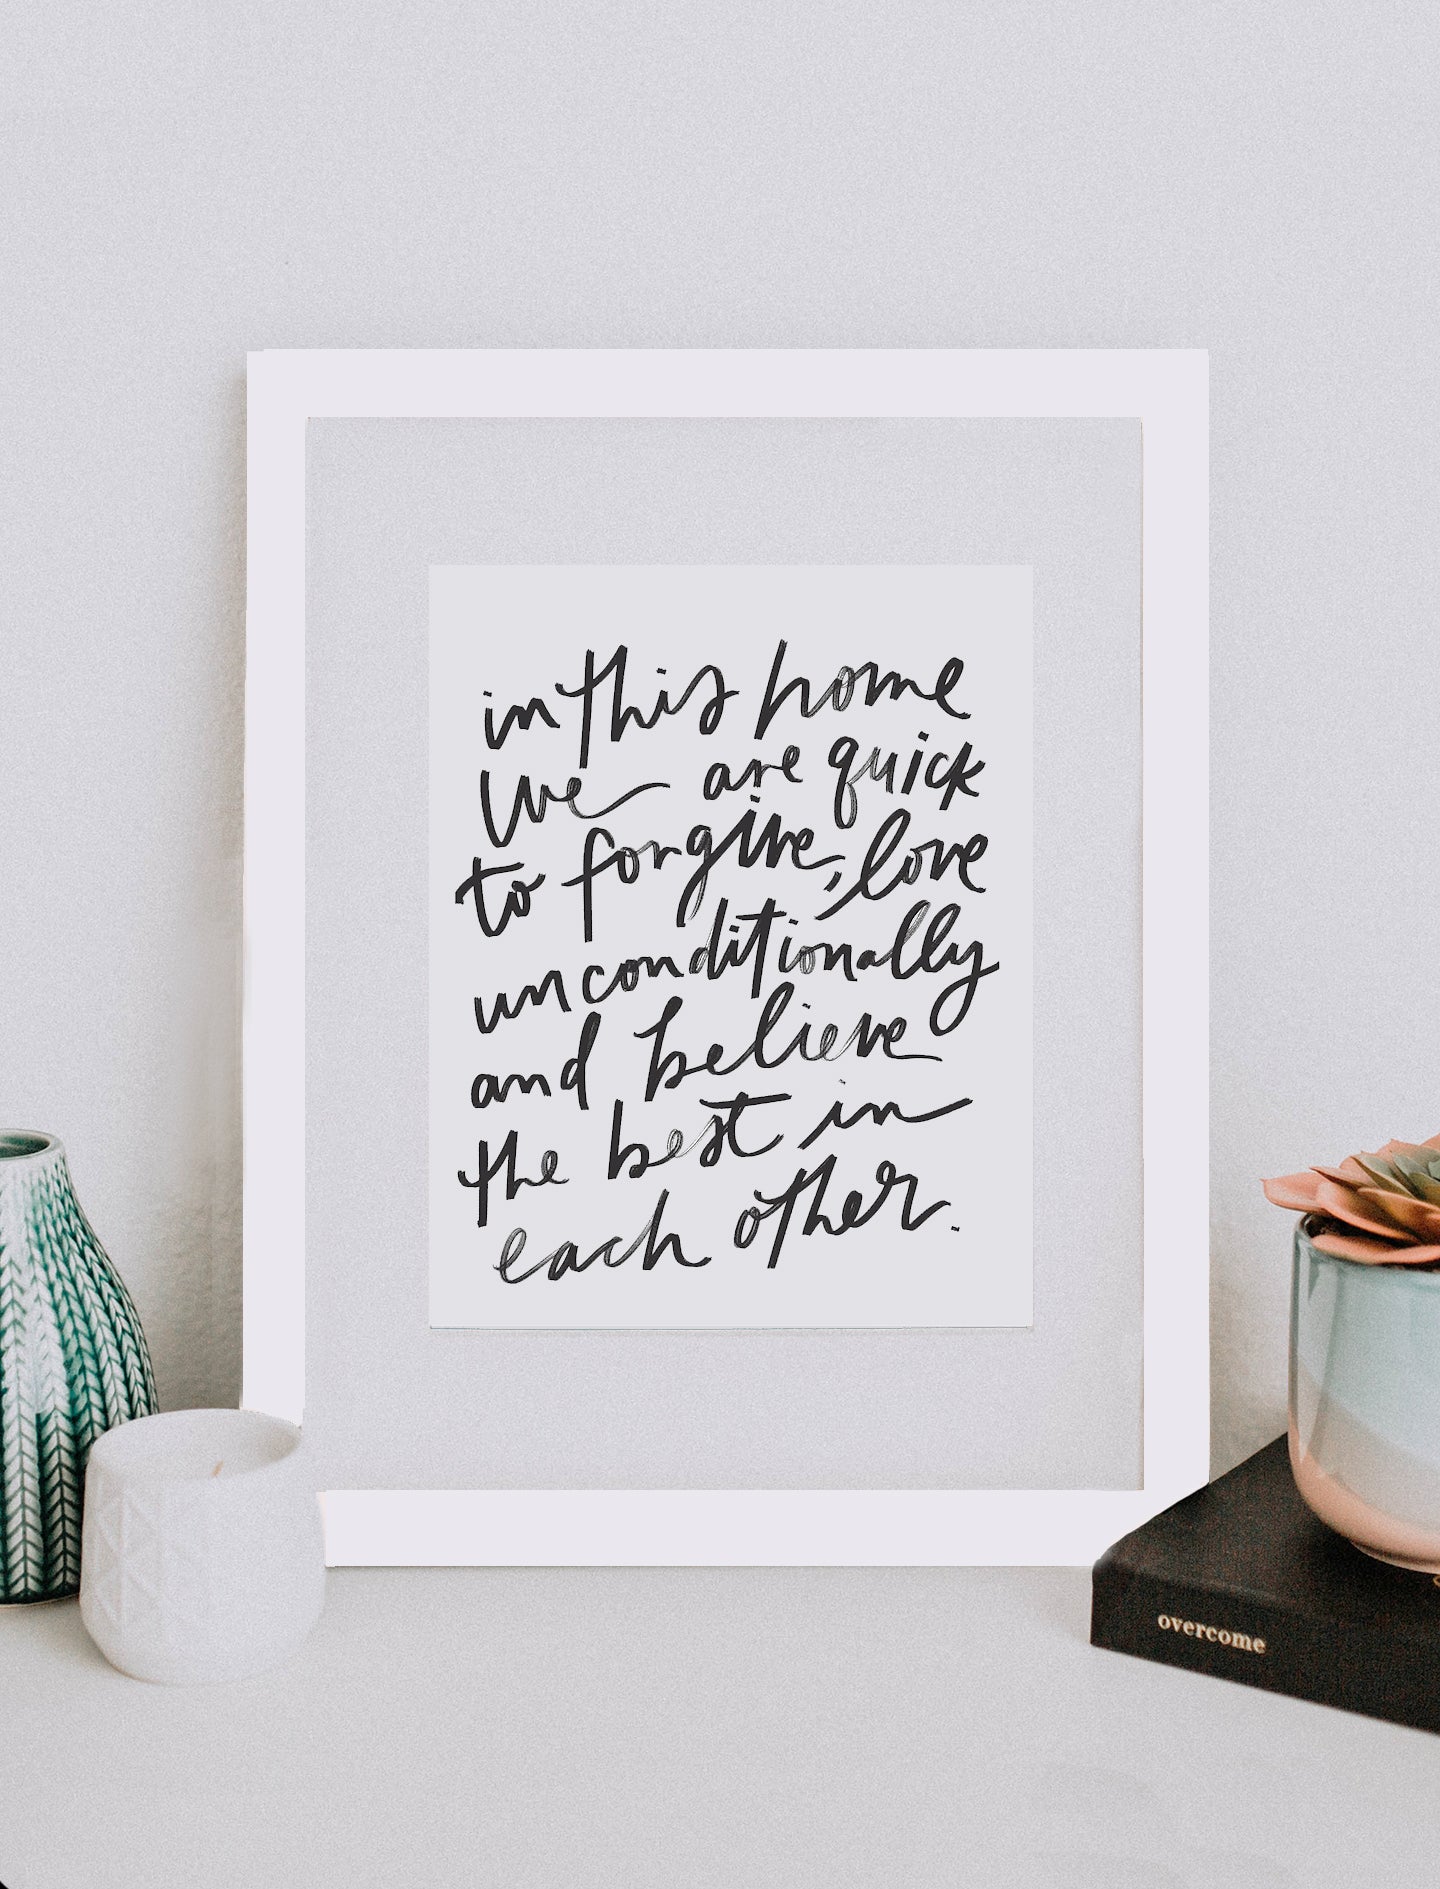 in this home
we are quick
to forgive, love
unconditionally
and believe
the best in
each other.
overcome